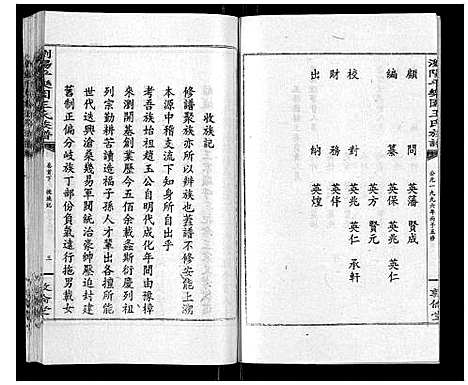 瀏陽平樂園王氏族譜
公元一九九六年丙子五修
敦倫堂
顧問 英藩 賢成
編纂 英保 英兆 英仁
英方 賢元
校對 英兆 英仁 承軒
財務 英伴
出納 英煌
收族記
修譜聚族亦所以辯族也蓋舊不修安能上溯
本源中稽支流下知身所自出乎
考吾族始祖趙玉公自明代成化年間由豫樟
來瀏開基創業歷今五佰餘載螽斯衍慶列祖
列宗勤耕苦讀子孫人才輩出各擅所能
世代迭興滄桑幾易軍閥統治豪紳壓迫封建
舊制正偏分岐族丁部份負氣遠行拖男載女
瀏陽平樂園王氏族譜
卷首下 收族記
三